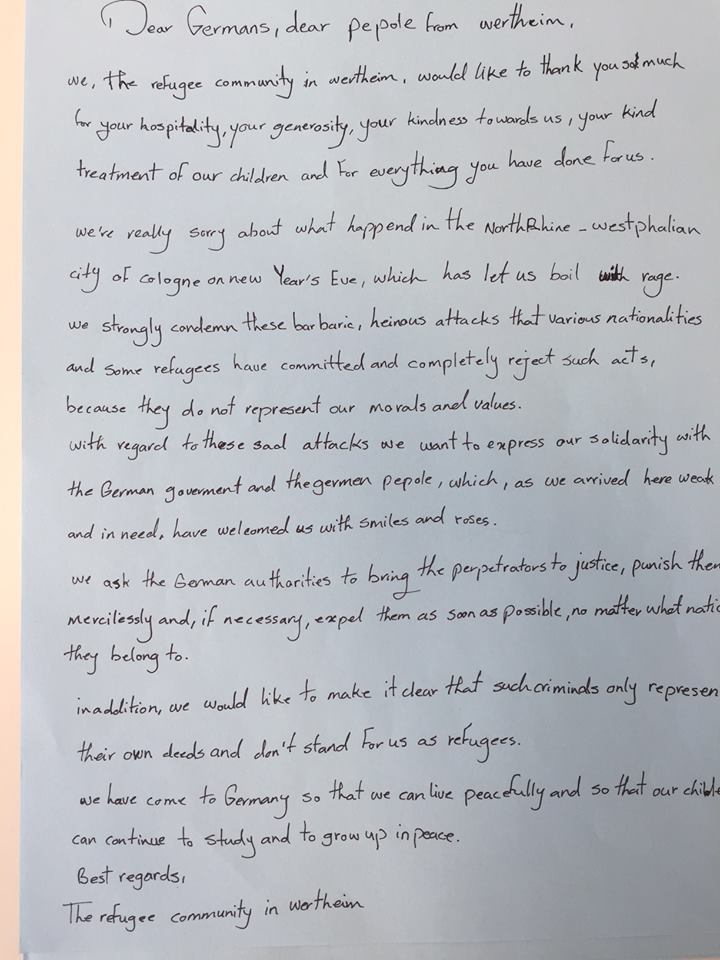 Dear Germans, dear pepole from wertheim,
we, the refugee community in wertheim, would like to thank you so much
for your hospitality, your generosity, your kindness towards us, your kind
treatment of our children and for everything you have done for us.
we're really sorry about what happend in the North Rhine - westphalian
city of cologne on new Year's Eve, which has let us boil with rage.
we strongly condemn these barbaric, heinous attacks that various nationalities
and some refugees have committed and completely reject such acts,
because they do not represent our morals and values.
with regard to these sad attacks we want to express our solidarity with
the German goverment and the germen pepole, which, as we arrived here weak
and in need, have welcomed us with smiles and roses.
we ask the German authorities to bring the perpetrators to justice, punish them
mercilessly and, if necessary, expel them as soon as possible, no matter what natio
they belong to.
in addition, we would like to make it clear that such criminals only represen
their own deeds and don't stand for us as refugees.
we have come to Germany so that we can live peacefully and so that our childre
can continue to study and to grow up in peace.
Best regards,
The refugee community in wertheim